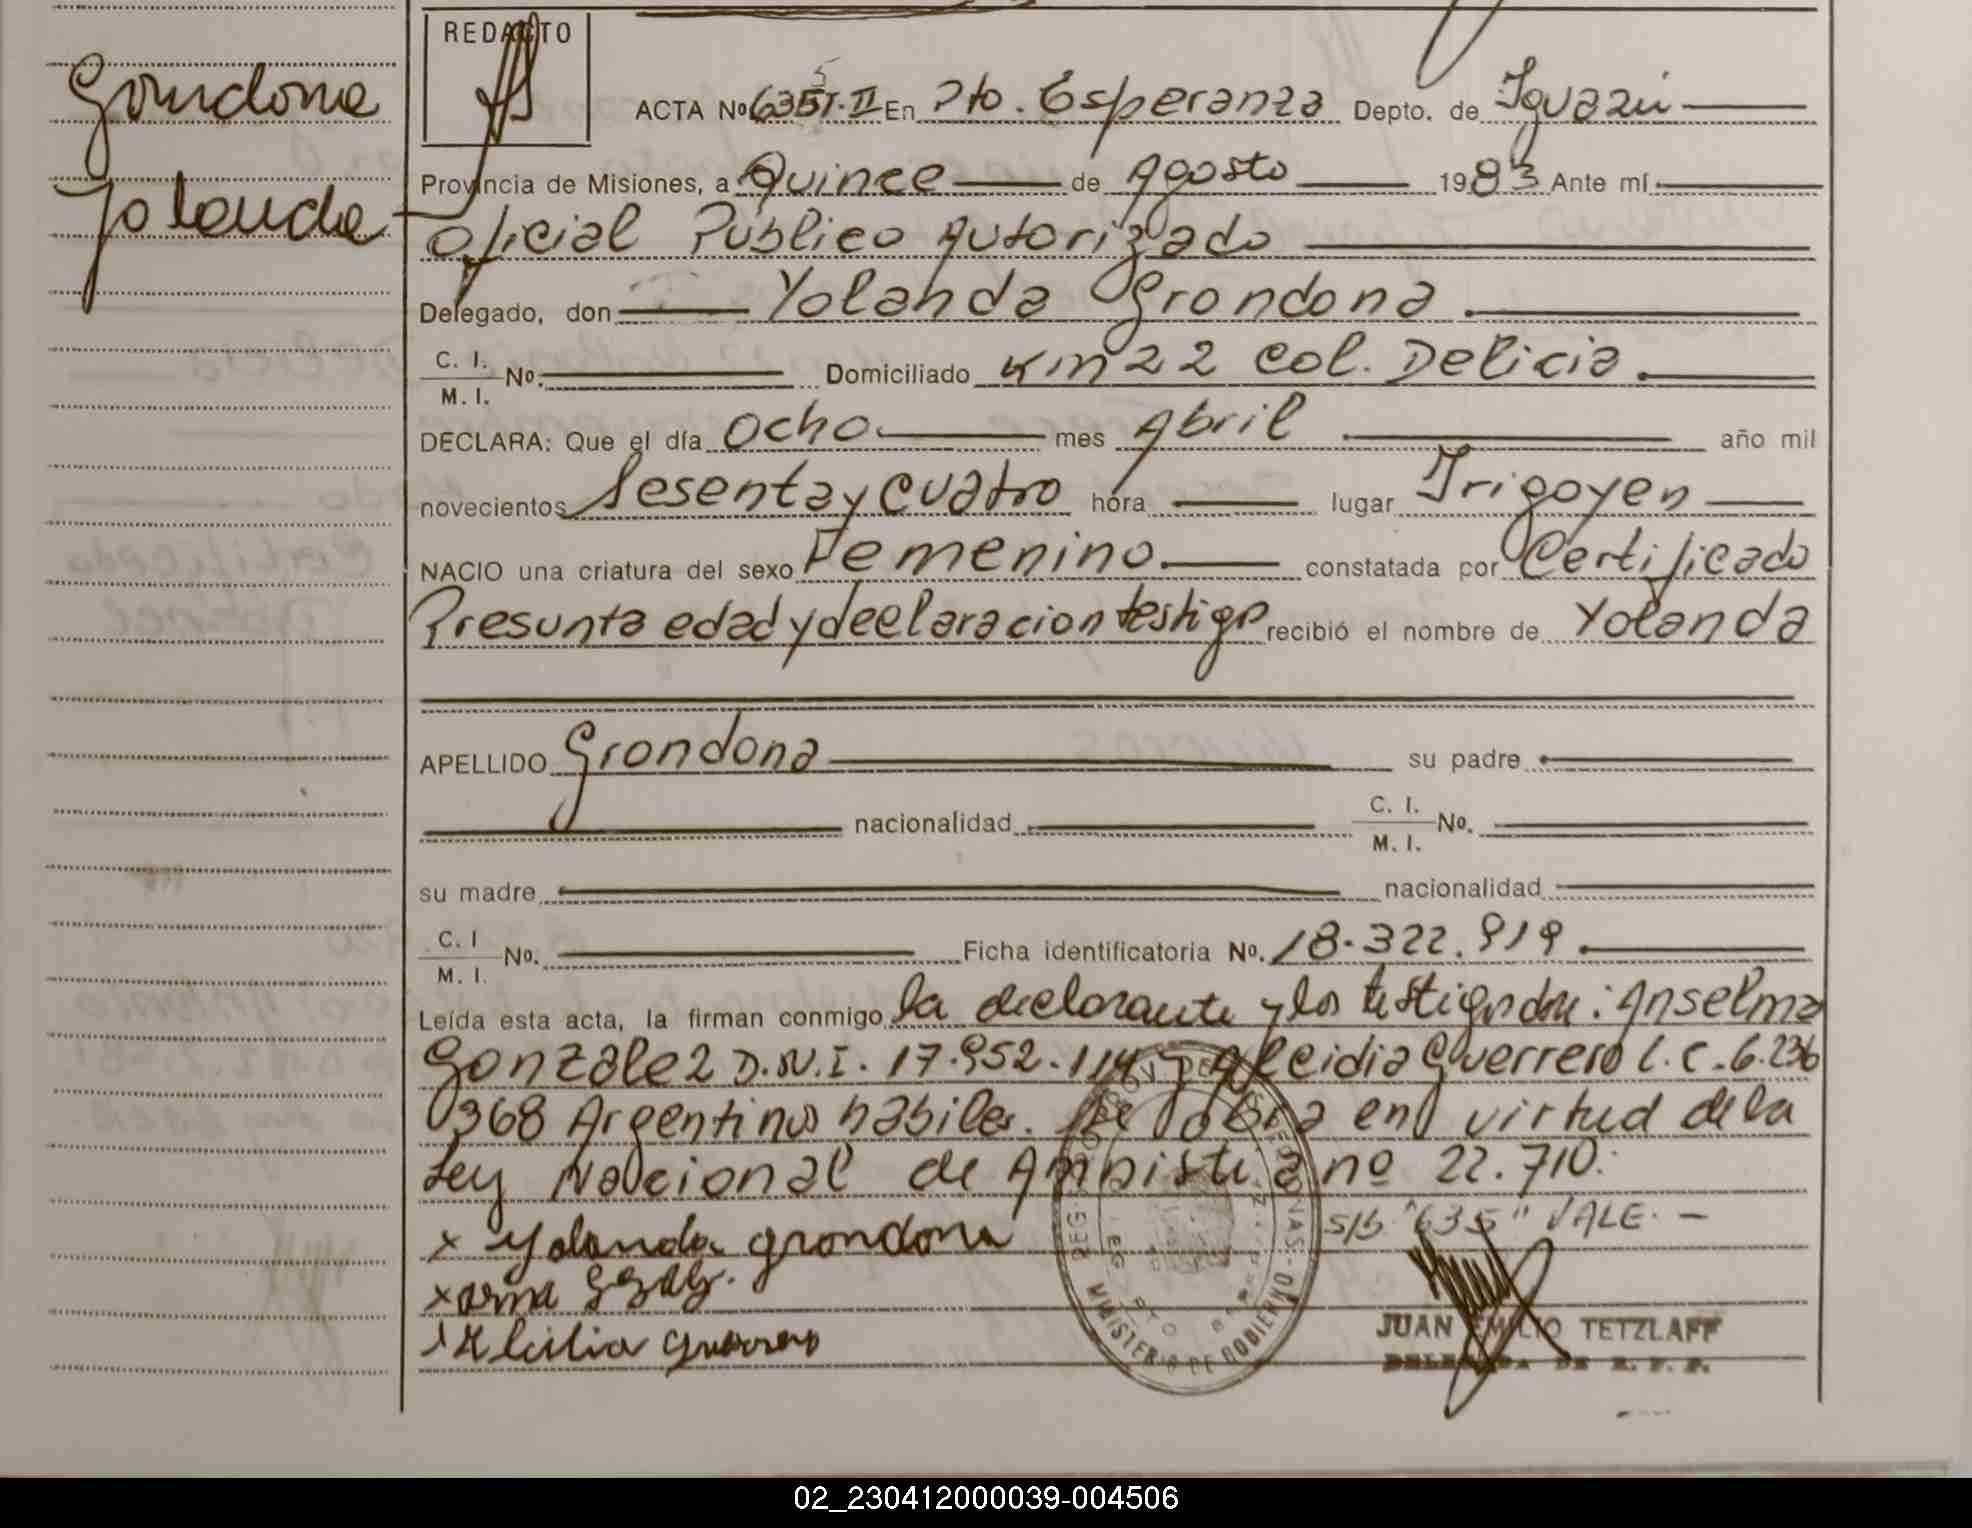 Grondona
Yolanda
REDACTO
ACTA Nº 635 T. II En Pto. Esperanza Depto. de Iguazú
Provincia de Misiones, a Quince de Agosto 1983 Ante mí
Oficial Publico Autorizado
Delegado, don Yolanda Grondona.
C. I.
M. I. No. Domiciliado Km 22 Col. Delicia.
DECLARA: Que el día Ocho mes Abril año mil
novecientos Sesenta y Cuatro hora lugar Irigoyen
NACIO una criatura del sexo Femenino. constatada por Certificado
Presunta edad y declaracion testigo recibió el nombre de Yolanda
APELLIDO Grondona su padre
nacionalidad C. I.
M. I. No.
su madre nacionalidad
C. I
M. I. No. Ficha identificatoria No. 18.322.919.
Leída esta acta, la firman conmigo la declarante y los testigos : Anselma
Gonzalez D.N.I. 17.952.114 y Alcidia Guerrero L.C. 6.236
368 Argentinos habiles. Se labra en virtud de la
Ley Nacional de Amnistia nº 22.710.
S/b "635" VALE. -
x Yolanda grondona
x
x Alcidia guerrero
MINISTERIO DE GOBIERNO
JUAN EMILIO TETZLAFF
DELEGADO DE R. P. P.
02_230412000039-004506